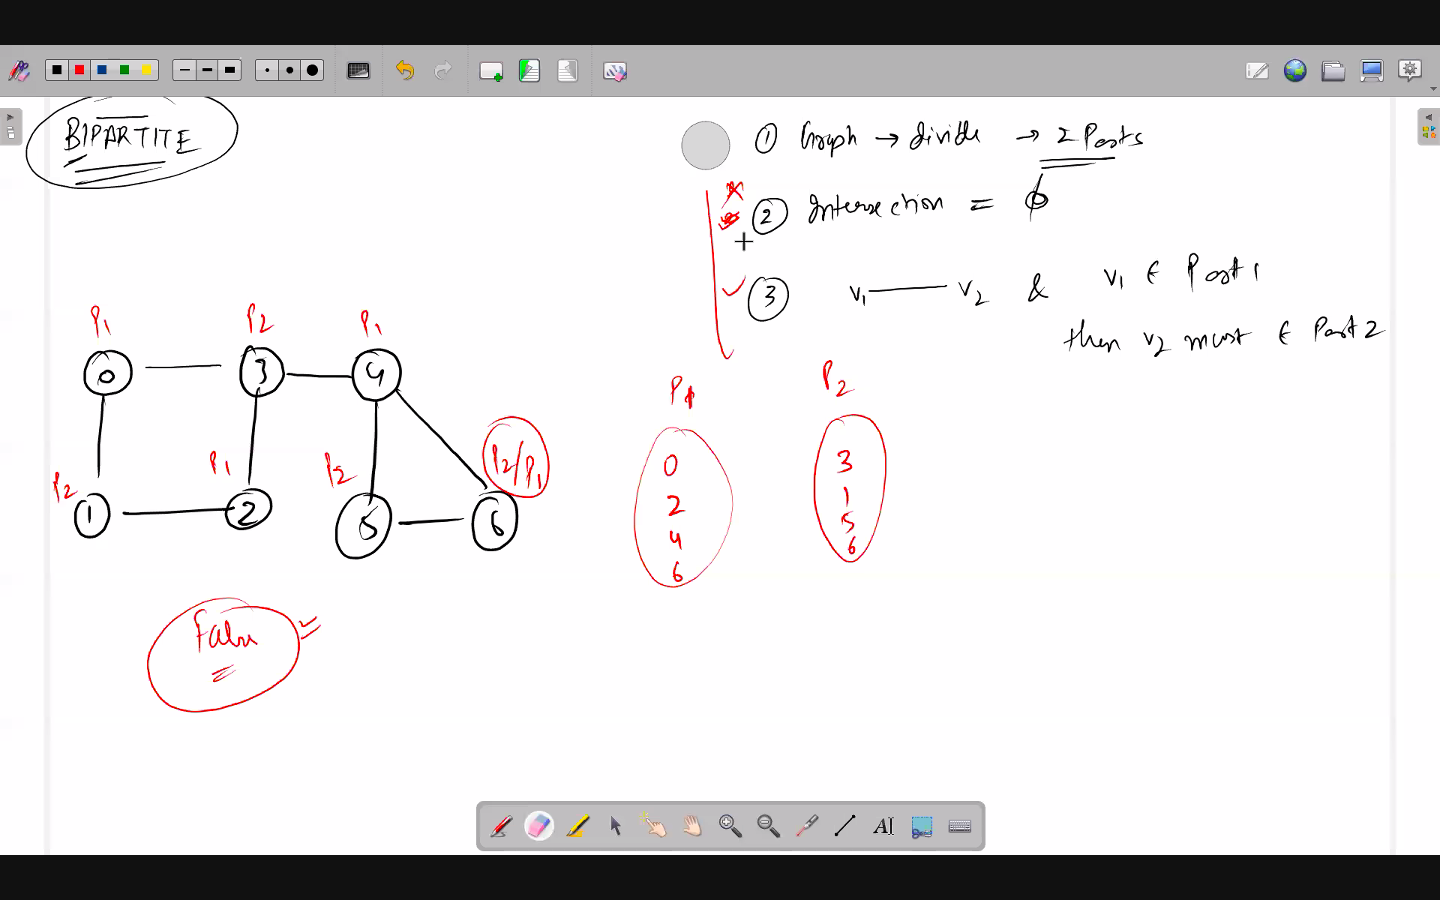 BIPARTITE
① Graph → divide → 2 Parts
② Intersection = ϕ
③ v1 — v2 & v1 ∈ Part 1
then v2 must ∈ Part 2
P1 P2 P1
0 3 4
P2 P1 P2 P2/P1
1 2 5 6
P1 P2
0 3
2 1
4 5
6 6
False